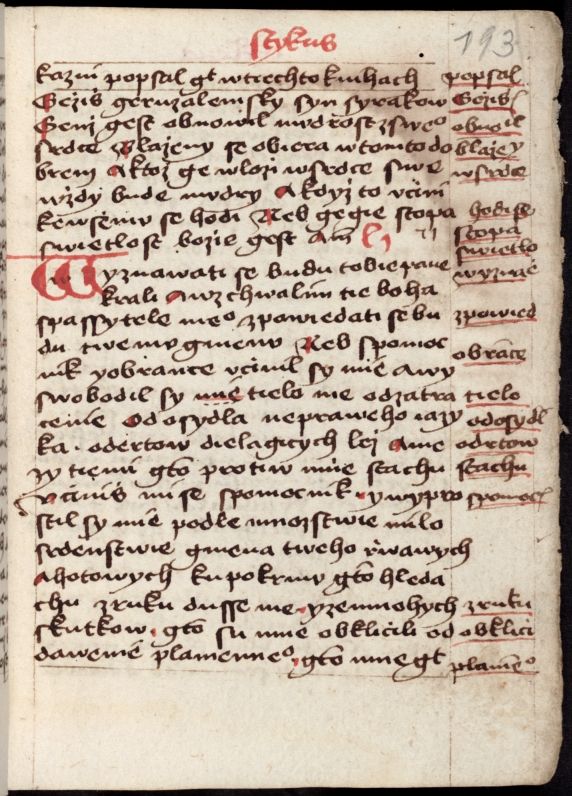 stykus
193
kazni popsal gt wtiechto knihach
Gezis geruzalemsky syn syrakow
Genz gest obnowil mudrost zsweo
srdce Blazeny se obiera wtomto do
brem A ktoz ge wlozi wsrdce swe
wzdy bude mudry A kdyz to vcini
kewsemu se hodi Neb gegie stopa
swietlost bozie gest Am
Wyznawati se budu tobie pane
krali A wzchwalim tie boha
spassytele meo zpowiedati se bu
du twemu gmenu Neb spomoc
nik y obrance vcinil sy mie A wy
swobodil sy me tielo me od zatra
cenie Od osydla nepraweho iazy
ka . od ertow dielagicych lez A me
zy tiemi gto protiw mnie stachu
vcinis mi se spomocnik . y wypro
stil sy mie podle mnozstwie milo
srdenstwie gmena tweho rwawych
Ahotowych ku pokrmu gto hleda
chu z ruku dusse me . y zemnohych
skutkow . gto su mne obklicili od
dawenie plamenneo . gto mne gt
popsal
Gezis
obnoil
blazey
wsrdce
hodi se
stopa
swietlo
wyznae
zpowied
obrace
tielo
od osydl
od rtow
stachu
spomoc
z ruku
obklici
plameo